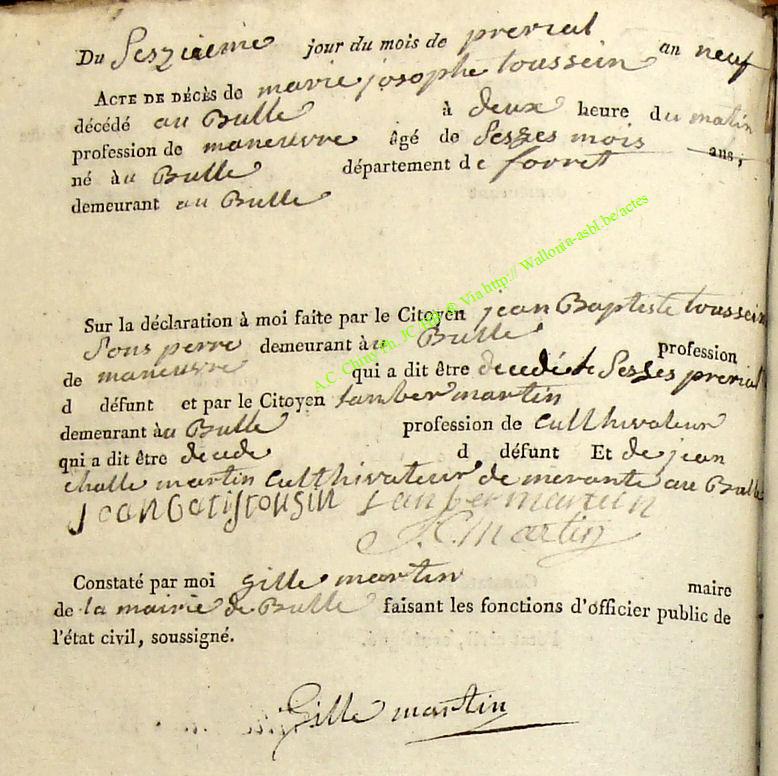 Du Seszieme jour du mois de prerial an neuf
ACTE DE DÉCÈS de marie josophe toussein
décédé au Bulle à deux heure du matin
profession de maneuvre âgé de Sesses mois ans,
né àu Bulle département de forret
demeurant au Bulle
Sur la déclaration à moi faite par le Citoyen jean Baptiste toussein
Sons perre demeurant àu Bulle profession
de maneuvre qui a dit être decedé le Sesses prerial
d défunt et par le Citoyen lamber martin
demeurant àu Bulle profession de cullhivateur
qui a dit être decede d défunt Et de jean
challe martin cullhivateur de merante au Bulle
jean batistousin lambermartin
J.C. Martin
Constaté par moi gille martin maire
de la mairie de Bulle faisant les fonctions d'officier public de
l'état civil, soussigné.
Gille martin